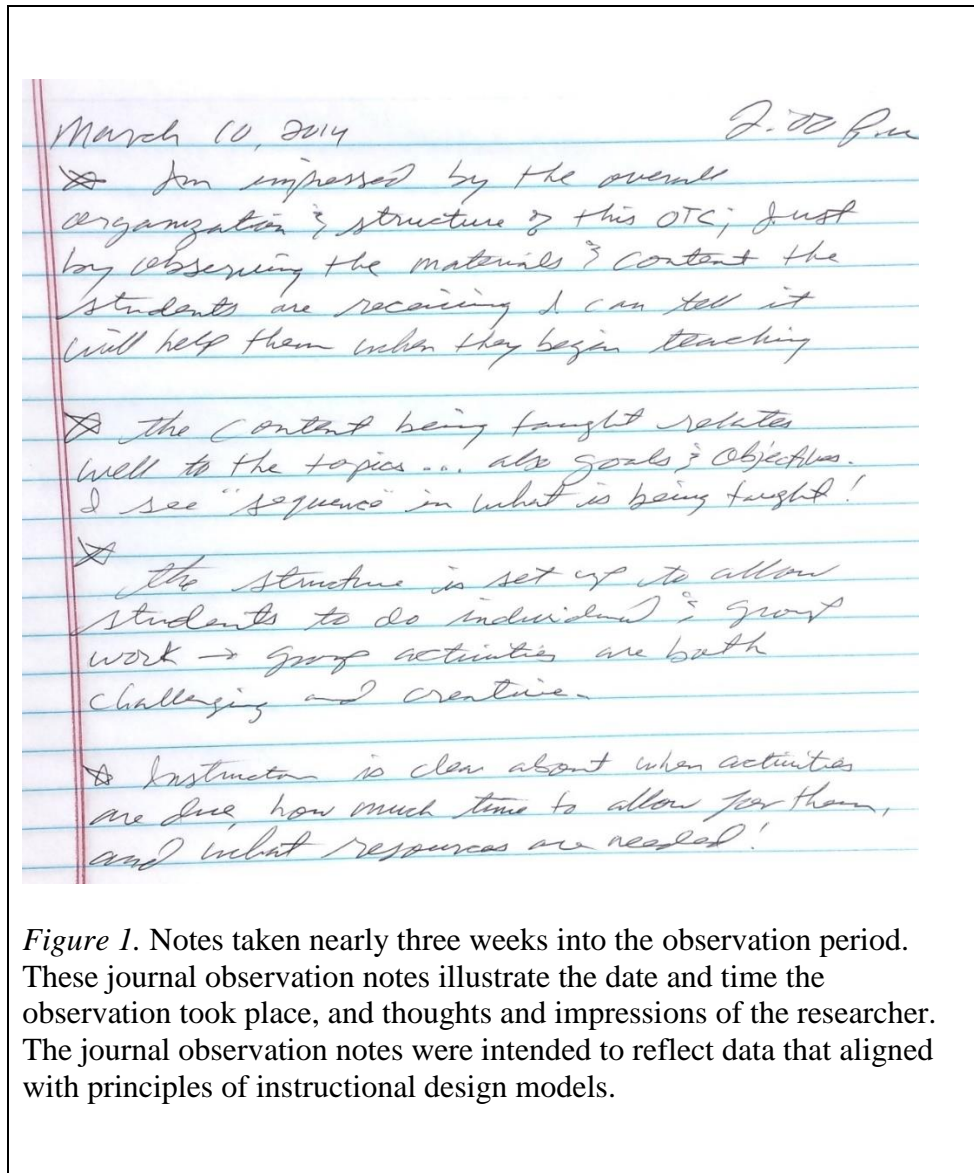 March 10, 2014 2:00 pm
☆ Am impressed by the overall
organization & structure of this OTC; just
by observing the materials & content the
students are receiving I can tell it
will help them when they begin teaching
☆ the content being taught relates
well to the topics... also goals & objectives.
I see "sequence" in what is being taught!
☆
the structure is set up to allow
students to do individual & group
work → group activities are both
challenging and creative.
☆ Instructor is clear about when activities
are due, how much time to allow for them,
and what resources are needed!
Figure 1. Notes taken nearly three weeks into the observation period.
These journal observation notes illustrate the date and time the
observation took place, and thoughts and impressions of the researcher.
The journal observation notes were intended to reflect data that aligned
with principles of instructional design models.